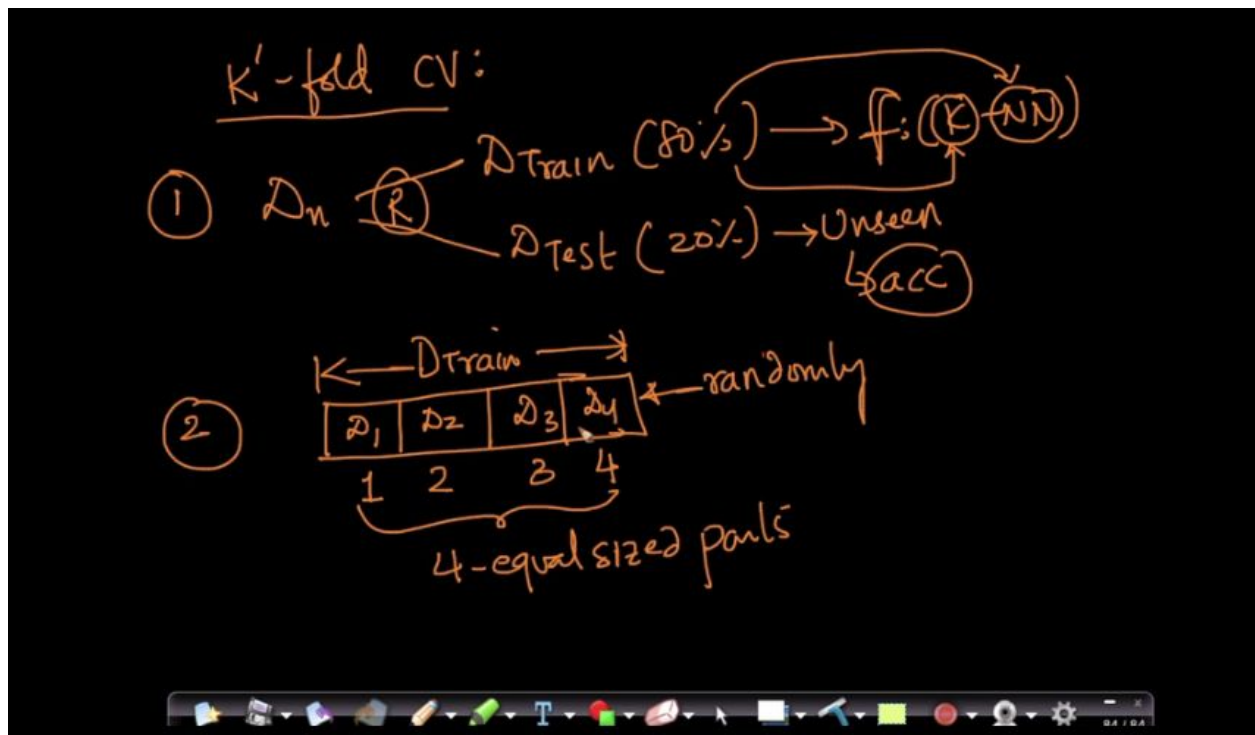 K'-fold CV:
DTrain (80%) → f: (K-NN)
1 Dn R
DTest (20%) → Unseen
↳ acc
DTrain
2 D1 D2 D3 D4 ← randomly
1 2 3 4
4-equal sized parts
T
84 / 84